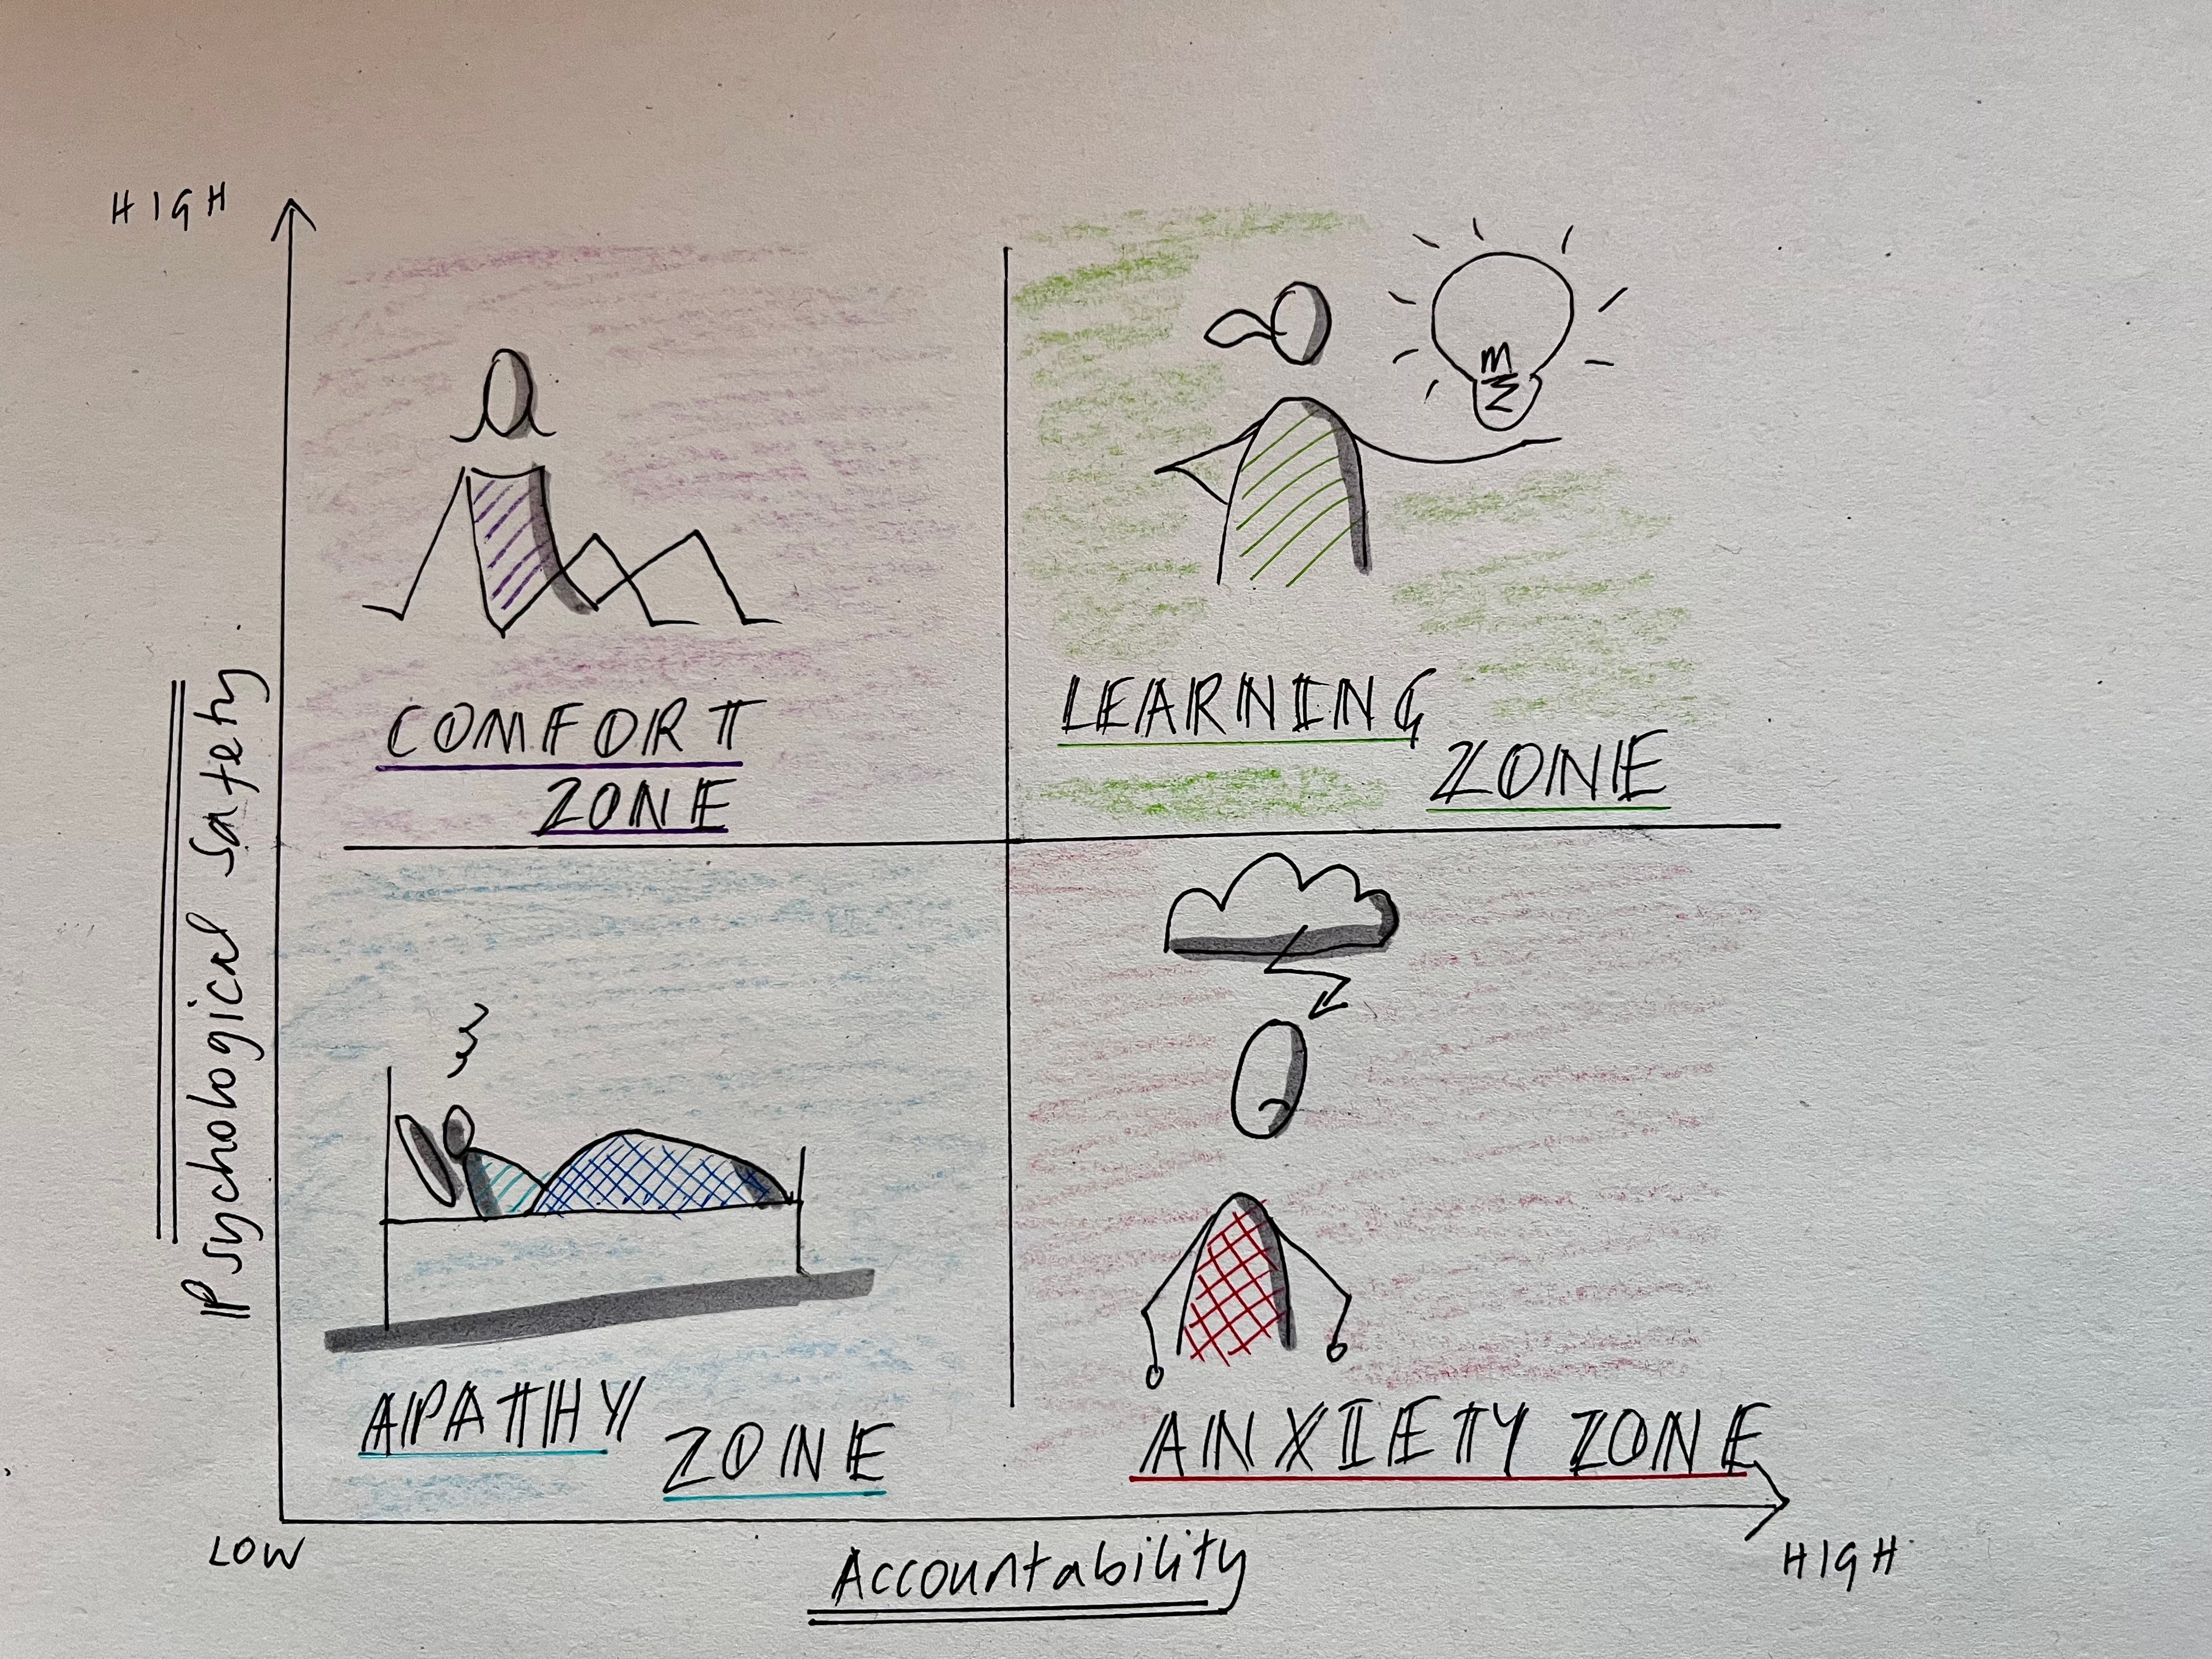 HIGH
Psychological Safety.
COMFORT
ZONE
LEARNING
ZONE
APATHY
ZONE
ANXIETY ZONE
LOW
Accountability
HIGH